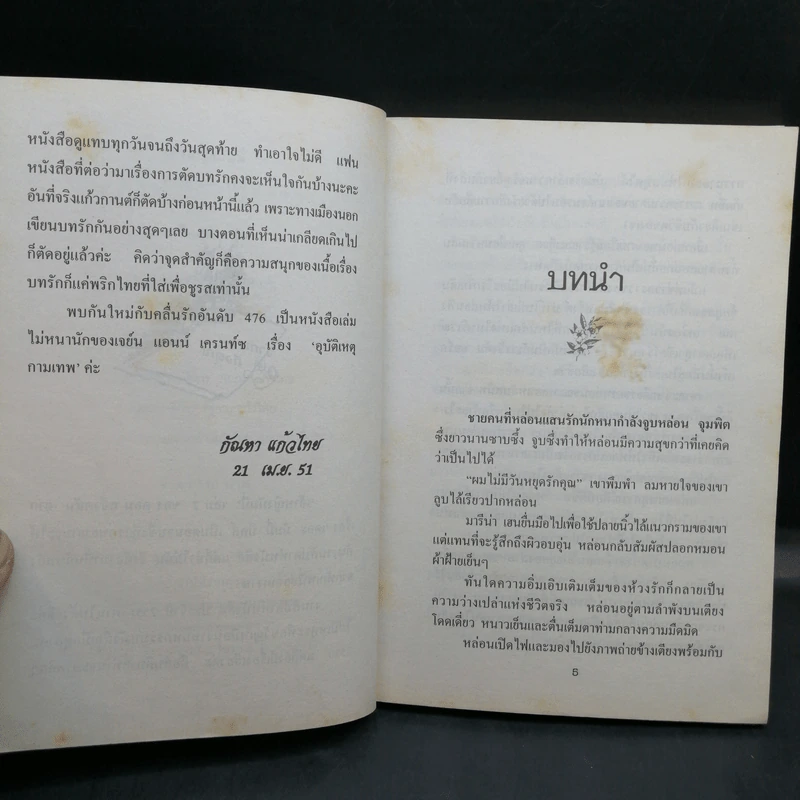 หนังสือดูแทบทุกวันจนถึงวันสุดท้าย ทำเอาใจไม่ดี แฟน
หนังสือที่ต่อว่ามาเรื่องการตัดบทรักคงจะเห็นใจกันบ้างนะคะ
อันที่จริงแก้วกานต์ก็ตัดบ้างก่อนหน้านี้แล้ว เพราะทางเมืองนอก
เขียนบทรักกันอย่างสุดๆเลย บางตอนที่เห็นน่าเกลียดเกินไป
ก็ตัดอยู่แล้วค่ะ คิดว่าจุดสำคัญก็คือความสนุกของเนื้อเรื่อง
บทรักก็แค่พริกไทยที่ใส่เพื่อชูรสเท่านั้น
พบกันใหม่กับคลื่นรักอันดับ 476 เป็นหนังสือเล่ม
ไม่หนานักของเจย์น แอนน์ เครนท์ซ เรื่อง 'อุบัติเหตุ
กามเทพ' ค่ะ
กัณหา แก้วไทย
21 เม.ย. 51
บทนำ
ชายคนที่หล่อนแสนรักนักหนากำลังจูบหล่อน จุมพิต
ซึ่งยาวนานซาบซึ้ง จูบซึ่งทำให้หล่อนมีความสุขกว่าที่เคยคิด
ว่าเป็นไปได้
"ผมไม่มีวันหยุดรักคุณ" เขาพึมพำ ลมหายใจของเขา
ลูบไล้เรียวปากหล่อน
มารีน่า เฮนยื่นมือไปเพื่อใช้ปลายนิ้วไล้แนวกรามของเขา
แต่แทนที่จะรู้สึกถึงผิวอบอุ่น หล่อนกลับสัมผัสปลอกหมอน
ผ้าฝ้ายเย็นๆ
ทันใดความอิ่มเอิบเติมเต็มของห้วงรักก็กลายเป็น
ความว่างเปล่าแห่งชีวิตจริง หล่อนอยู่ตามลำพังบนเตียง
โดดเดี่ยว หนาวเย็นและตื่นเต็มตาท่ามกลางความมืดมิด
หล่อนเปิดไฟและมองไปยังภาพถ่ายข้างเตียงพร้อมกับ
5